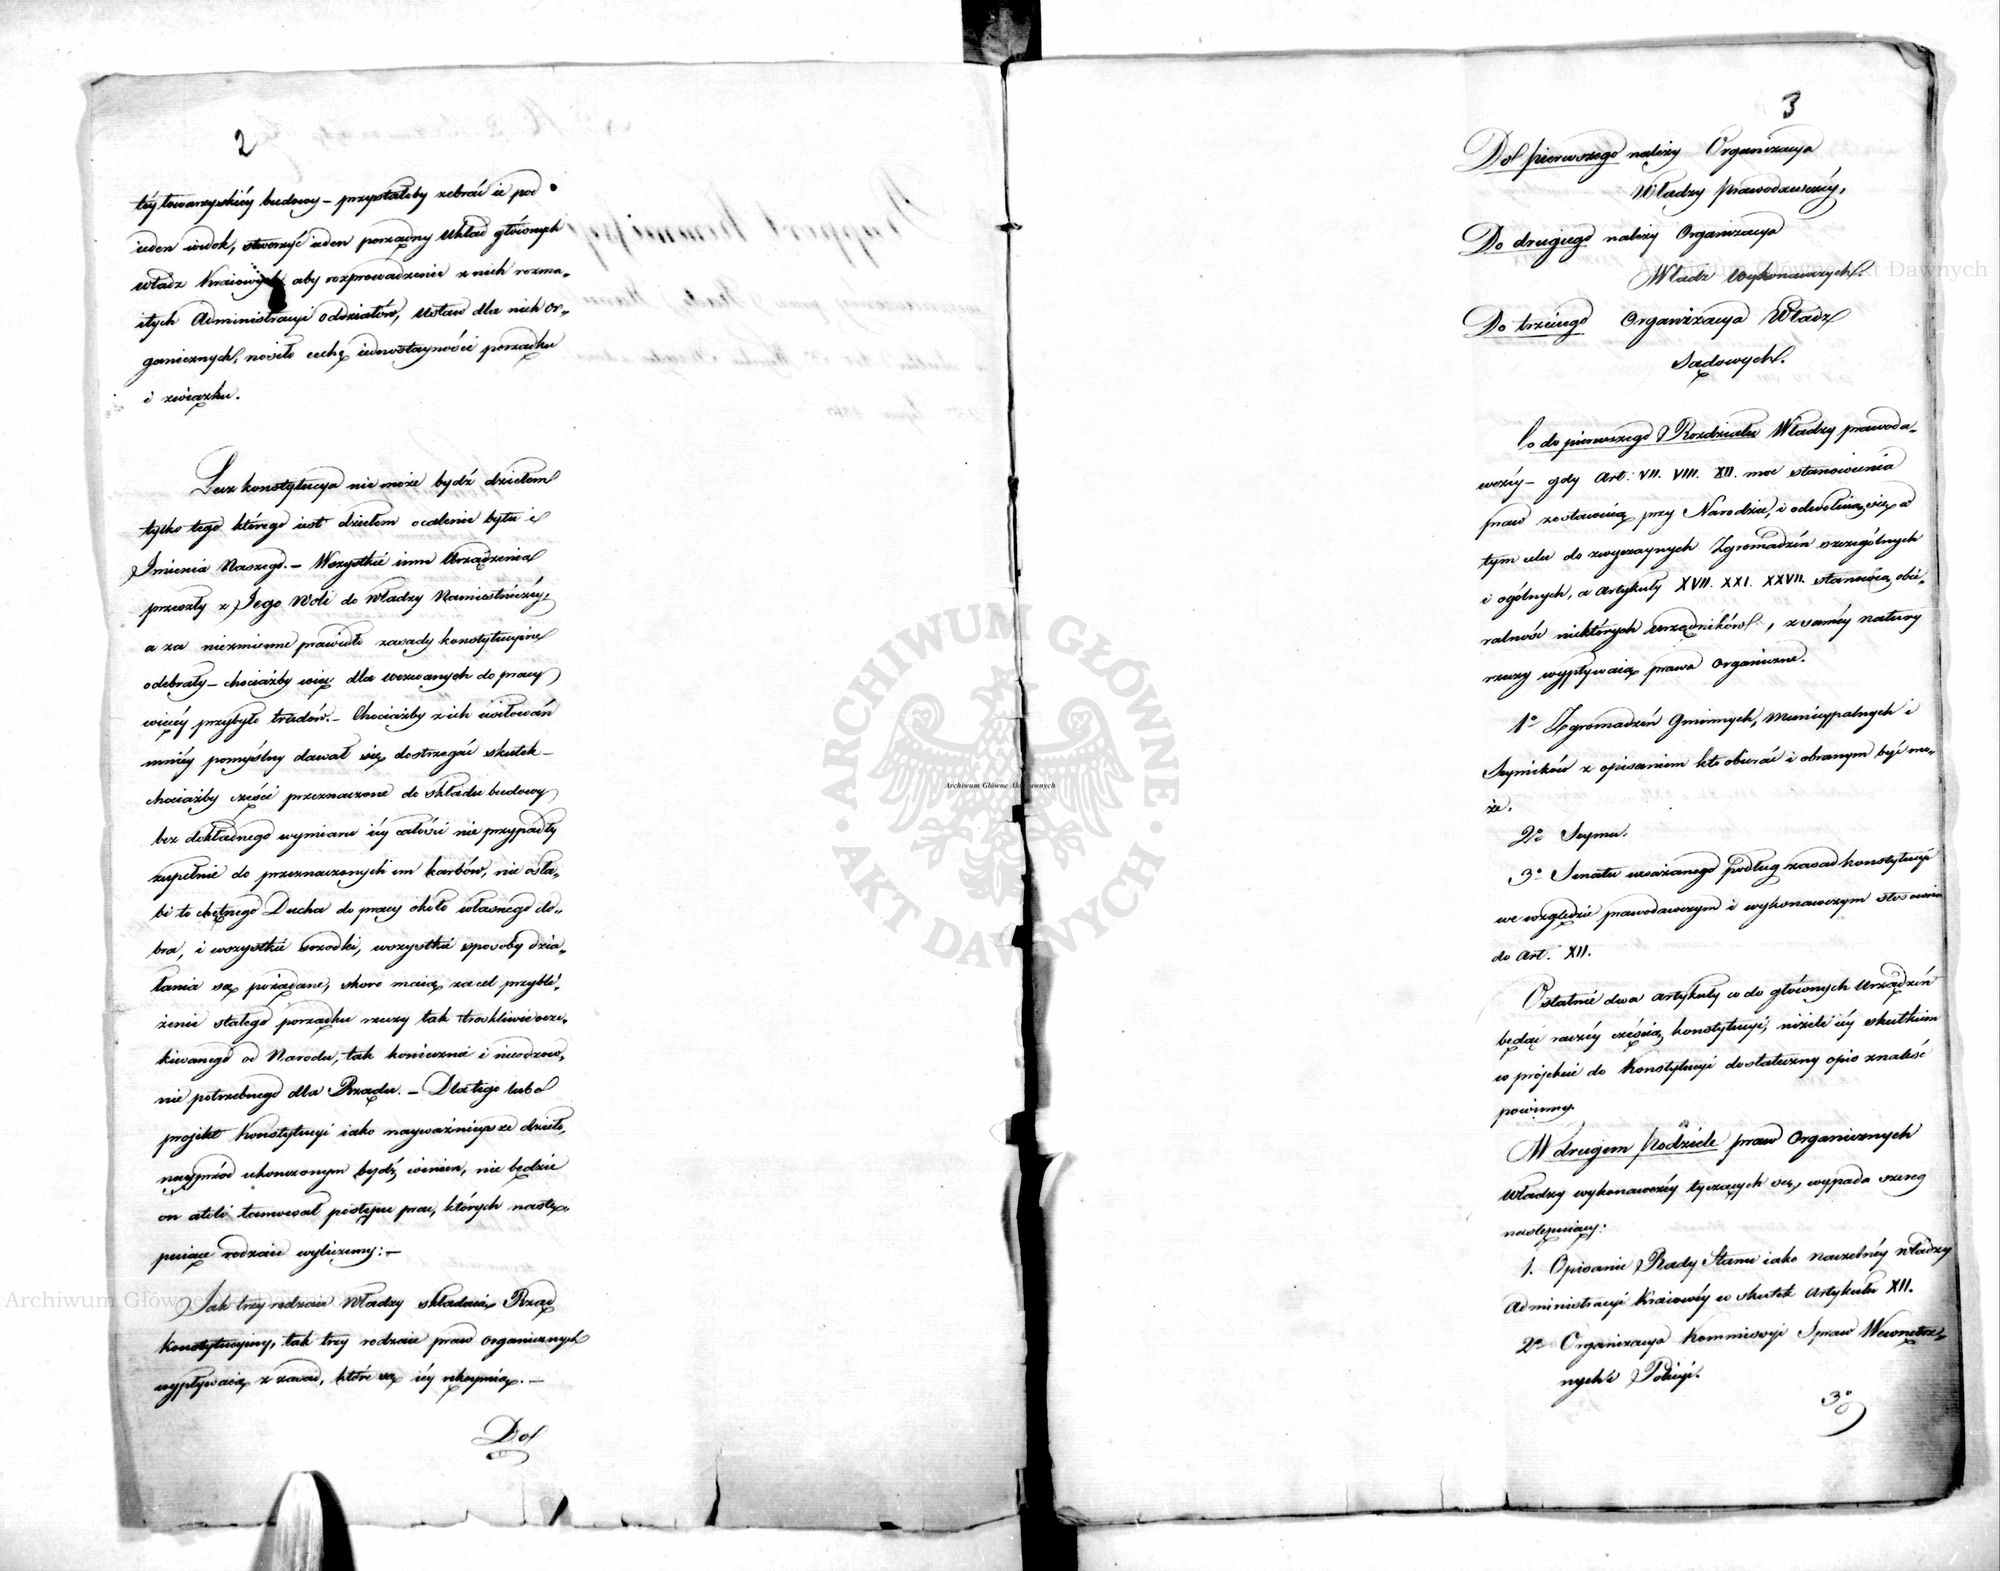 2
téy towarzyskiéy budowy – przystałoby zebrać ie pod
ieden widok, stworzyć ieden porządny układ głównych
władz Kraiowych aby rozprowadzenie z nich rozma„
itych Administracyi oddziałów, ustaw dla nich or„
ganicznych, nosiło cechę iednostayności porządku
i związku.
Lecz konstytucya nie może bydź dziełem
tylko tego którego iest dziełem ocalenie bytu i
Imienia Naszego. – Wszystkie inne Urządzenia
przeszły z Jego Woli do Władzy Namiestniczéy,
a za niezmienne prawidło zasady konstytucyine
odebrały – chociażby więc dla wezwanych do pracy
więcéy przybyło trudów. – Chociażby z ich usiłowań
mniéy pomyślny dawał się dostrzegać skutek –
chociażby części przeznaczone do składu budowy
bez dokładnego wymiaru iéy całości nie przypadły
zupełnie do przeznaczonych im karbów, nie osła„
bi to chętnego Ducha do pracy około własnego do„
bra, i wszystkie srzodki, wszystkie sposoby dzia„
łania są pożądane, skoro maią za cel przybli„
żenie stałego porządku rzeczy tak troskliwie ocze„
kiwanego od Narodu, tak koniecznie i nieodzow„
nie potrzebnego dla Rządu. – Dla tego lubo
projekt Konstytucyi iako nayważnieysze dzieło,
nayprzód ukończonym bydź winien, nie będzie
on atoli tamował postępu prac, których nastę„
puiące rodzaie wyliczemy: –
Jak trzy rodzaie Władzy składaią Rząd
konstytucyiny, tak trzy rodzaie praw organicznych
wypływaią z zasad, które są iéy rękoymią. –
Do
3
Do pierwszego należy Organizacya
Władzy Prawodawczéy,
Do drugiego należy Organizacya
Władz wykonawczych.
Do trzeciego Organizacya Władz
Sądowych.
Co do pierwszego Rozdziału Władzy prawoda„
wczéy – gdy Art: VII. VIII. XII. moc stanowienia
praw zostawują przy Narodzie, i odwołują się w
tym celu do zwyczaynych Zgromadzeń szczególnych
i ogólnych, a Artykuły XVII. XXI. XXVII. stanowią obie„
ralność niektórych urzędników, z saméy natury
rzeczy wypływaią prawa organiczne.
1o Zgromadzeń Gminnych, Municypalnych i
Seymików z opisaniem kto obierać i obranym być mo„
że.
2o Seymu.
3o Senatu uważanego podług zasad konstytucyi
we względzie prawodawczym i wykonawczym stosownie
do Art. XII.
Ostatnie dwa artykuły co do głównych Urządzeń
będąc raczéy częścią konstytucyi, niżeli iéy skutkiem
w projekcie do Konstytucyi dostateczny opis znaleść
powinny.
W drugiem Rodziele praw Organicznych
Władzy wykonawczéy tyczących się, wypada szereg
następuiący:
1. Opisanie Rady Stanu iako naczelnéy władzy
Administracyi Kraiowéy w skutek Artykułu XII.
2o Organizacya Kommissyi Spraw Wewnętrz„
nych i Policyi.
3o